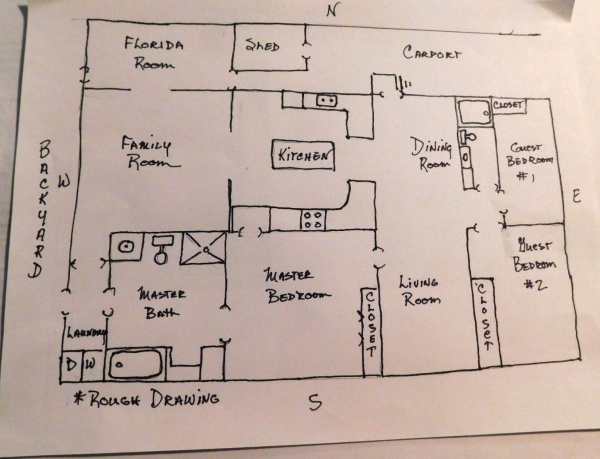 N
FLORIDA
ROOM
SHED
CARPORT
CLOSET
FAMILY
ROOM
KITCHEN
DINING
ROOM
GUEST
BEDROOM
#1
BACKYARD
W
E
MASTER
BATH
MASTER
BEDROOM
LIVING
ROOM
GUEST
BEDROOM
#2
CLOSET
CLOSET
LAUNDRY
D W
*ROUGH DRAWING
S